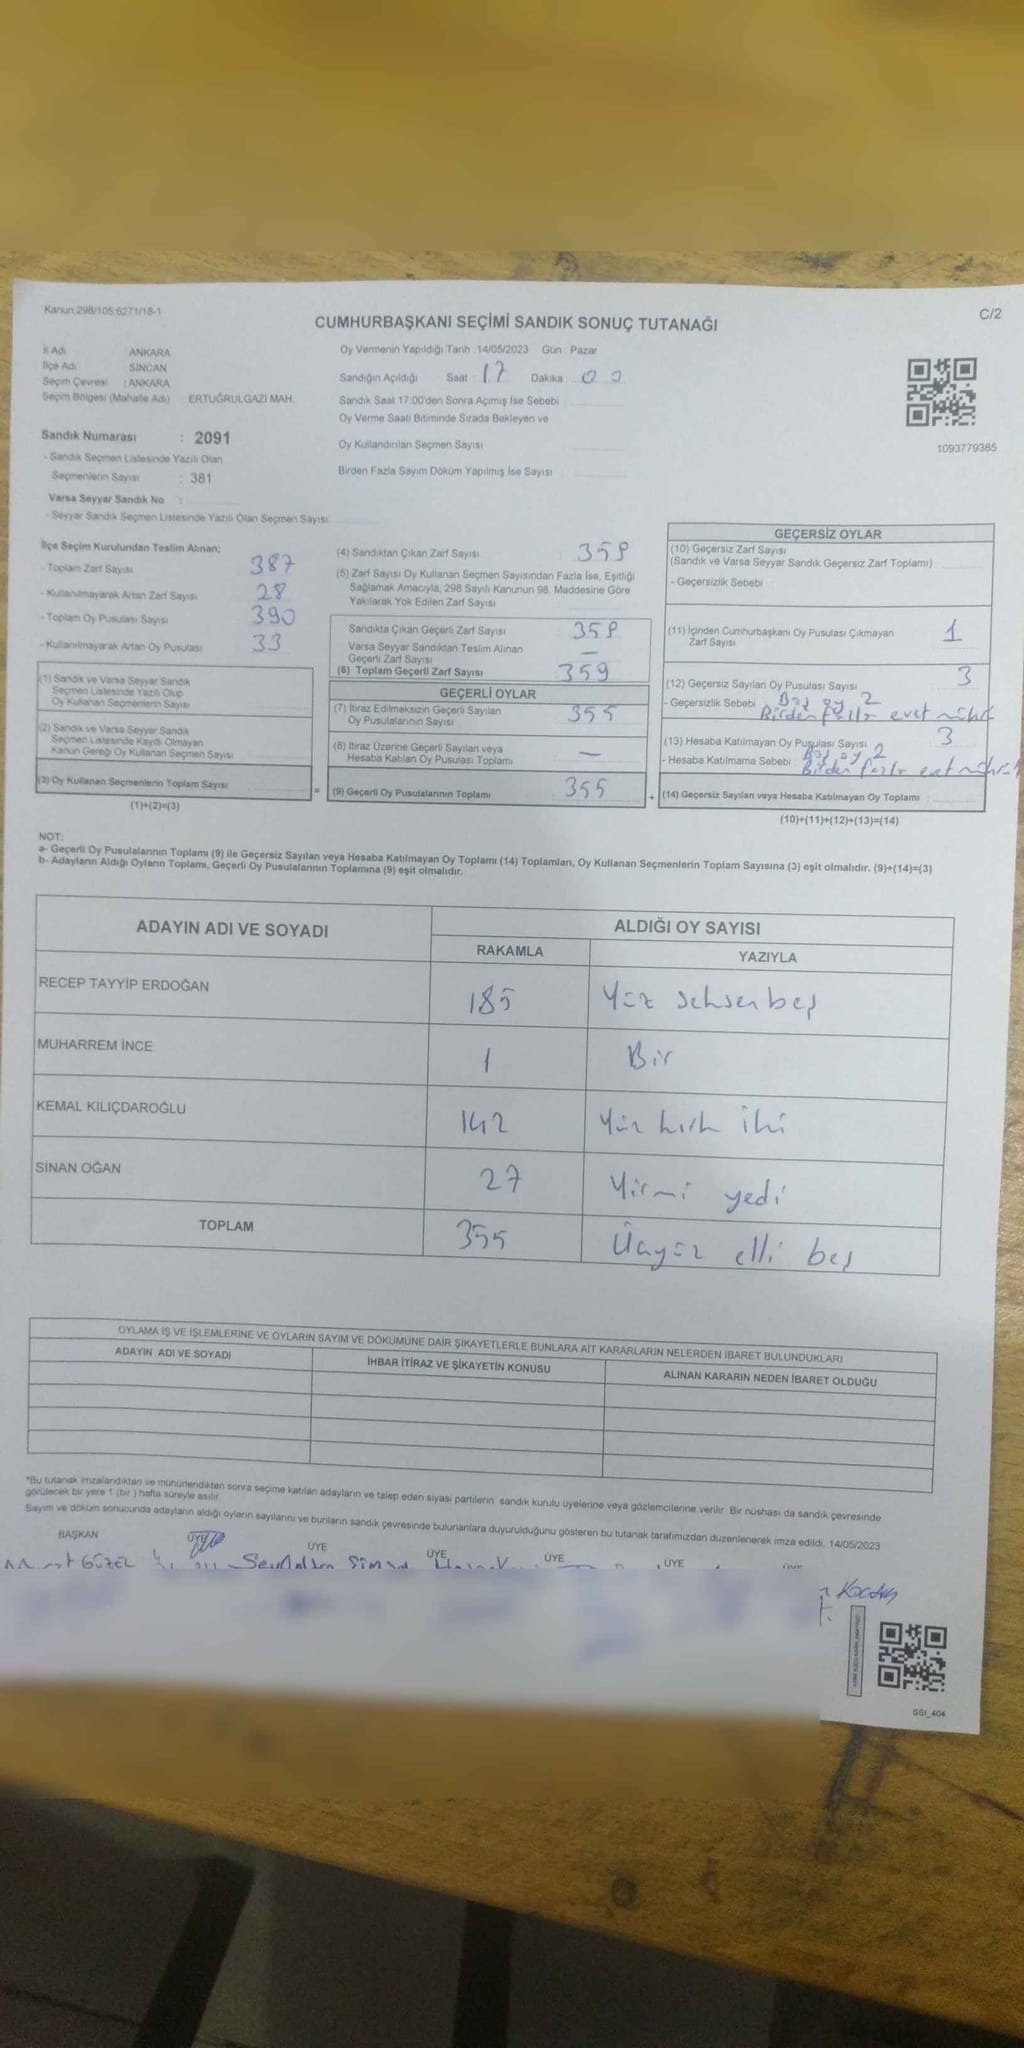 Kanun:298/105,6271/18-1
C/2
CUMHURBAŞKANI SEÇİMİ SANDIK SONUÇ TUTANAĞI
İl Adı ANKARA
İlçe Adı SİNCAN
Seçim Çevresi : ANKARA
Seçim Bölgesi (Mahalle Adı) ERTUĞRULGAZİ MAH.
Sandık Numarası : 2091
- Sandık Seçmen Listesinde Yazılı Olan
Seçmenlerin Sayısı : 381
Varsa Seyyar Sandık No :
- Seyyar Sandık Seçmen Listesinde Yazılı Olan Seçmen Sayısı
Oy Vermenin Yapıldığı Tarih : 14/05/2023 Gün : Pazar
Sandığın Açıldığı Saat : 17 Dakika : 00
Sandık Saat 17:00'den Sonra Açmış İse Sebebi
Oy Verme Saati Bitiminde Sırada Bekleyen ve
Oy Kullandırılan Seçmen Sayısı
Birden Fazla Sayım Döküm Yapılmış İse Sayısı
1093779385
İlçe Seçim Kurulundan Teslim Alınan;
- Toplam Zarf Sayısı 387
- Kullanılmayarak Artan Zarf Sayısı 28
- Toplam Oy Pusulası Sayısı 390
- Kullanılmayarak Artan Oy Pusulası 33
(1) Sandık ve Varsa Seyyar Sandık
Seçmen Listesinde Yazılı Olup
Oy Kullanan Seçmenlerin Sayısı
(2) Sandık ve Varsa Seyyar Sandık
Seçmen Listesinde Kayıtlı Olmayan
Kanun Gereği Oy Kullanan Seçmen Sayısı
(3) Oy Kullanan Seçmenlerin Toplam Sayısı
(1)+(2)=(3)
=
(4) Sandıktan Çıkan Zarf Sayısı 359
(5) Zarf Sayısı Oy Kullanan Seçmen Sayısından Fazla İse, Eşitliği
Sağlamak Amacıyla, 298 Sayılı Kanunun 98. Maddesine Göre
Yakılarak Yok Edilen Zarf Sayısı
Sandıkta Çıkan Geçerli Zarf Sayısı 359
Varsa Seyyar Sandıktan Teslim Alınan
Geçerli Zarf Sayısı —
(6) Toplam Geçerli Zarf Sayısı 359
GEÇERLİ OYLAR
(7) İtiraz Edilmeksizin Geçerli Sayılan
Oy Pusulalarının Sayısı 355
(8) İtiraz Üzerine Geçerli Sayılan veya
Hesaba Katılan Oy Pusulası Toplamı —
(9) Geçerli Oy Pusulalarının Toplamı 355
+
GEÇERSİZ OYLAR
(10) Geçersiz Zarf Sayısı
(Sandık ve Varsa Seyyar Sandık Geçersiz Zarf Toplamı)
- Geçersizlik Sebebi
(11) İçinden Cumhurbaşkanı Oy Pusulası Çıkmayan
Zarf Sayısı 1
(12) Geçersiz Sayılan Oy Pusulası Sayısı 3
- Geçersizlik Sebebi : Boş oy 2
Birden fazla evet mühür
(13) Hesaba Katılmayan Oy Pusulası Sayısı 3
- Hesaba Katılmama Sebebi : Boş oy 2
Birden fazla evet mühür
(14) Geçersiz Sayılan veya Hesaba Katılmayan Oy Toplamı
(10)+(11)+(12)+(13)=(14)
NOT:
a- Geçerli Oy Pusulalarının Toplamı (9) ile Geçersiz Sayılan veya Hesaba Katılmayan Oy Toplamı (14) Toplamları, Oy Kullanan Seçmenlerin Toplam Sayısına (3) eşit olmalıdır. (9)+(14)=(3)
b- Adayların Aldığı Oyların Toplamı, Geçerli Oy Pusulalarının Toplamına (9) eşit olmalıdır.
ADAYIN ADI VE SOYADI ALDIĞI OY SAYISI
RAKAMLA YAZIYLA
RECEP TAYYİP ERDOĞAN 185 Yüz seksenbeş
MUHARREM İNCE 1 Bir
KEMAL KILIÇDAROĞLU 142 Yüz kırk iki
SİNAN OĞAN 27 Yirmi yedi
TOPLAM 355 Üçyüz elli beş
OYLAMA İŞ VE İŞLEMLERİNE VE OYLARIN SAYIM VE DÖKÜMÜNE DAİR ŞİKAYETLERLE BUNLARA AİT KARARLARIN NELERDEN İBARET BULUNDUKLARI
ADAYIN ADI VE SOYADI İHBAR İTİRAZ VE ŞİKAYETİN KONUSU ALINAN KARARIN NEDEN İBARET OLDUĞU
*Bu tutanak imzalandıktan ve mühürlendikten sonra seçime katılan adayların ve talep eden siyasi partilerin sandık kurulu üyelerine veya gözlemcilerine verilir. Bir nüshası da sandık çevresinde
görülecek bir yere 1 (bir) hafta süreyle asılır.
Sayım ve döküm sonucunda adayların aldığı oyların sayılarını ve bunların sandık çevresinde bulunanlara duyurulduğunu gösteren bu tutanak tarafımızdan düzenlenerek imza edildi. 14/05/2023
BAŞKAN ÜYE ÜYE ÜYE ÜYE ÜYE
GÜZEL
SSI_404